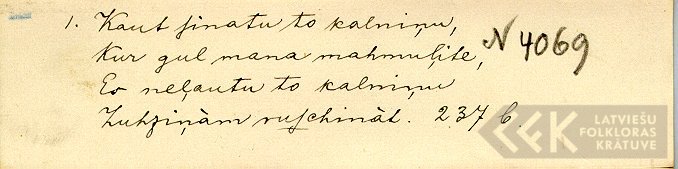 1. Kaut sinatu to kalniņu,
Kur gul mana mahmuļite, N 4069
Es neļautu to kalniņu
Zuhziņàm ruschinàt. 237 b.
LATVIEŠU
FOLKLORAS
KRĀTUVE